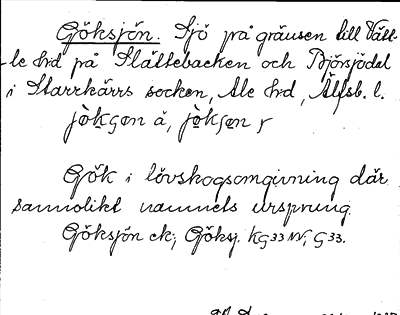 Göksjön. Sjö på gränsen till Vätt-
le hrd på Slättebacken och Björsjödal
i Starrkärrs socken, Ale hrd, Älfsb. l.
jɷ̀kʂøn å, jɷ̀kʃøn γ
Gök i lövskogsomgivning där
sannolikt namnets ursprung.
Göksjön ek; Göksj. KG33 NV; G33.